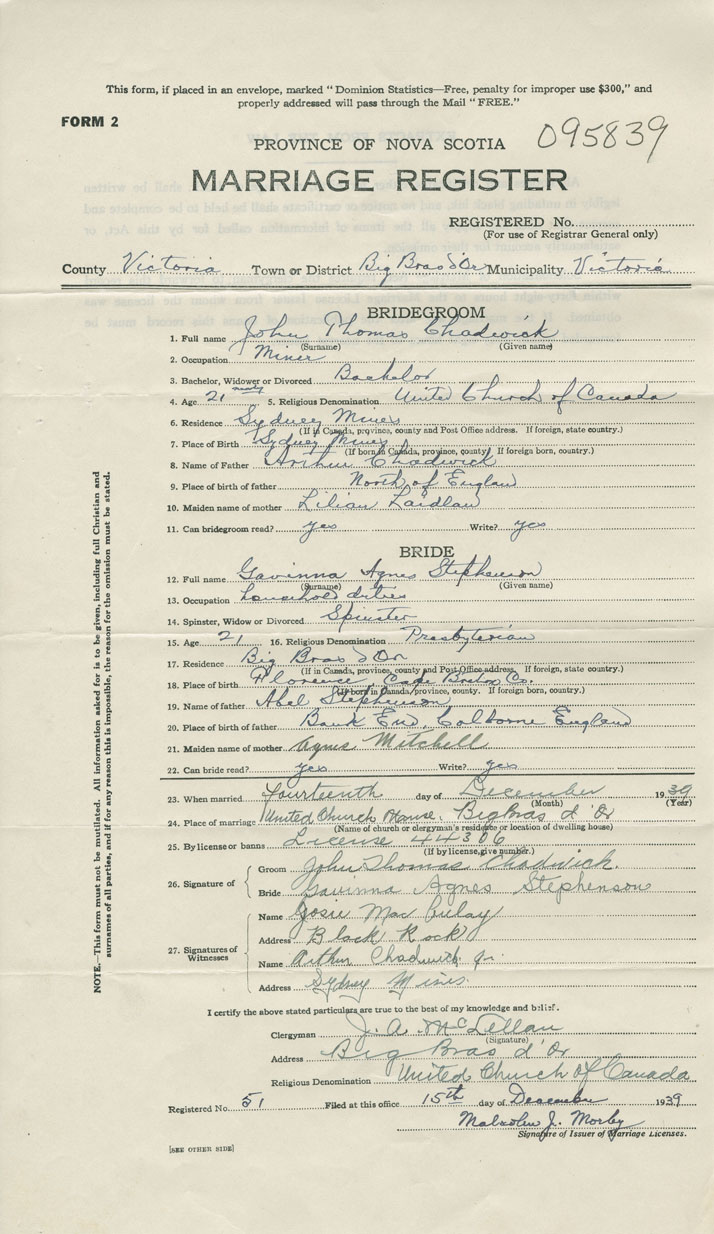 This form, if placed in an envelope, marked "Dominion Statistics—Free, penalty for improper use $300," and
properly addressed will pass through the Mail "FREE."
FORM 2
095839
PROVINCE OF NOVA SCOTIA
MARRIAGE REGISTER
REGISTERED No.
(For use of Registrar General only)
County Victoria Town or District Big Bras d'Or Municipality Victoria
BRIDEGROOM
1. Full name John Thomas Chadwick
(Surname) (Given name)
2. Occupation Miner
3. Bachelor, Widower or Divorced Bachelor
4. Age 21 5. Religious Denomination United Church of Canada
6. Residence Sydney Mines
(If in Canada, province, county and Post Office address. If foreign, state country.)
7. Place of Birth Sydney Mines
(If born in Canada, province, county. If foreign born, country.)
8. Name of Father Arthur Chadwick
9. Place of birth of father North of England
10. Maiden name of mother Lilian Laidlaw
11. Can bridegroom read? yes Write? yes
BRIDE
12. Full name Gavinna Agnes Stephenson
(Surname) (Given name)
13. Occupation household duties
14. Spinster, Widow or Divorced Spinster
15. Age 21 16. Religious Denomination Presbyterian
17. Residence Big Bras d'Or
(If in Canada, province, county and Post Office address. If foreign, state country.)
18. Place of birth Florence, Cape Breton Co.
(If born in Canada, province, county. If foreign born, country.)
19. Name of father Abel Stephenson
20. Place of birth of father Bank End, Colborne England
21. Maiden name of mother Agnes Mitchell
22. Can bride read? yes Write? yes
23. When married fourteenth day of December 1939
(Month) (Year)
24. Place of marriage United Church Manse, Big Bras d'Or
(Name of church or clergyman's residence or location of dwelling house)
25. By license or banns License 44306
(If by license, give number.)
26. Signature of
Groom John Thomas Chadwick.
Bride Gavinna Agnes Stephenson
27. Signatures of Witnesses
Name Josie MacAulay
Address Black Rock
Name Arthur Chadwick jr.
Address Sydney Mines.
I certify the above stated particulars are true to the best of my knowledge and belief.
Clergyman J. A. McLellan
(Signature)
Address Big Bras d'Or
Religious Denomination United Church of Canada
Registered No. 51 Filed at this office 15th day of December 1939
Malcolm J. Morby
Signature of Issuer of Marriage Licenses.
[SEE OTHER SIDE]
NOTE.—This form must not be mutilated. All information asked for is to be given, including full Christian and
surnames of all parties, and if for any reason this is impossible, the reason for the omission must be stated.